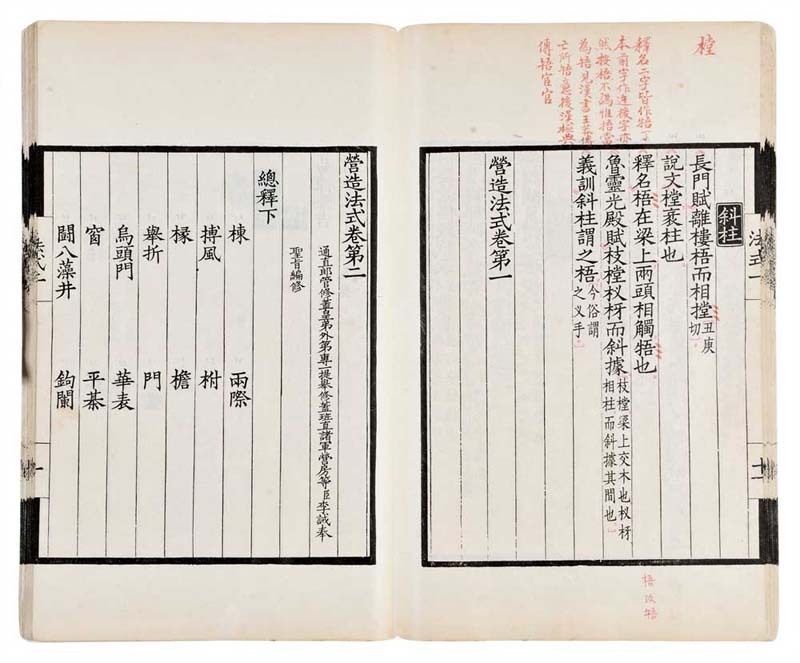 樘
釋名二字皆作牾丁
本前字作迕後字亦
然按牾不譌惟捂當
為牾見漢書王莽傳
亡所牾意後漢桓典
傳牾宦官
法式一 十一
斜柱
長門賦離樓梧而相摚丑庚切
說文樘衺柱也
釋名梧在梁上兩頭相觸牾也
魯靈光殿賦枝樘杈枒而斜據枝樘梁上交木也杈枒相柱而斜據其間也
義訓斜柱謂之梧今俗謂之义手
營造法式卷第一
梧改牾
營造法式卷第二
通直郎管修蓋皇弟外第專一提舉修蓋班直諸軍營房等臣李誡奉
聖旨編修
總釋下
棟 兩際
搏風 柎
椽 檐
舉折 門
烏頭門 華表
窗 平棊
鬬八藻井 鉤闌
一